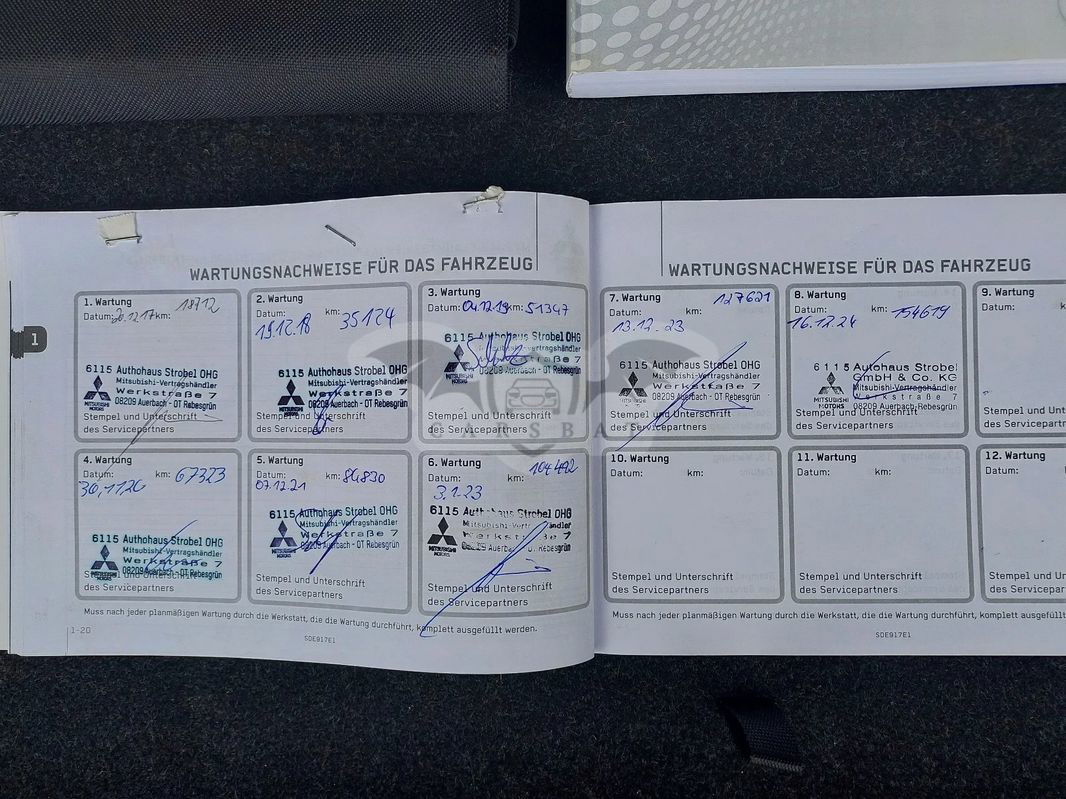 WARTUNGSNACHWEISE FÜR DAS FAHRZEUG
1
1. Wartung
18712
Datum: 20.12.17 km:
6115 Authohaus Strobel OHG
Mitsubishi-Vertragshändler
Werkstraße 7
MITSUBISHI MOTORS
08209 Auerbach - OT Rebesgrün
Stempel und Unterschrift
des Servicepartners
2. Wartung
Datum: km:
19.12.18 35124
6115 Authohaus Strobel OHG
Mitsubishi-Vertragshändler
Werkstraße 7
MITSUBISHI MOTORS
08209 Auerbach - OT Rebesgrün
Stempel und Unterschrift
des Servicepartners
3. Wartung
Datum: 04.12.19 km: 51347
6115 Authohaus Strobel OHG
Mitsubishi-Vertragshändler
Werkstraße 7
08209 Auerbach - OT Rebesgrün
Stempel und Unterschrift
des Servicepartners
4. Wartung
Datum: km: 67323
30.11.20
6115 Authohaus Strobel OHG
Mitsubishi-Vertragshändler
Werkstraße 7
MITSUBISHI MOTORS
08209 Auerbach - OT Rebesgrün
Stempel und Unterschrift
des Servicepartners
5. Wartung
Datum: km: 86830
07.12.21
6115 Authohaus Strobel OHG
Mitsubishi-Vertragshändler
Werkstraße 7
MITSUBISHI MOTORS
08209 Auerbach - OT Rebesgrün
Stempel und Unterschrift
des Servicepartners
6. Wartung
104492
Datum: km:
3.1.23
6115 Authohaus Strobel OHG
Mitsubishi-Vertragshändler
Werkstraße 7
08209 Auerbach - OT Rebesgrün
Stempel und Unterschrift
des Servicepartners
Muss nach jeder planmäßigen Wartung durch die Werkstatt, die die Wartung durchführt, komplett ausgefüllt werden.
1-20
SDE917E1
WARTUNGSNACHWEISE FÜR DAS FAHRZEUG
7. Wartung
127621
Datum: km:
13.12.23
6115 Authohaus Strobel OHG
Mitsubishi-Vertragshändler
Werkstraße 7
MITSUBISHI MOTORS
08209 Auerbach - OT Rebesgrün
Stempel und Unterschrift
des Servicepartners
8. Wartung
Datum: km: 154619
16.12.24
6115 Autohaus Strobel
GmbH & Co. KG
Mitsubishi-Vertragshändler
Werkstraße 7
MITSUBISHI MOTORS
08209 Auerbach-Rebesgrün
Stempel und Unterschrift
des Servicepartners
9. Wartung
Datum:
Stempel und Unter
des Servicepartners
10. Wartung
Datum: km:
Stempel und Unterschrift
des Servicepartners
11. Wartung
Datum: km:
Stempel und Unterschrift
des Servicepartners
12. Wartung
Datum:
Stempel und Unter
des Servicepartners
Muss nach jeder planmäßigen Wartung durch die Werkstatt, die die Wartung durchführt, komplett ausgefüllt
SDE917E1
CARSBAT